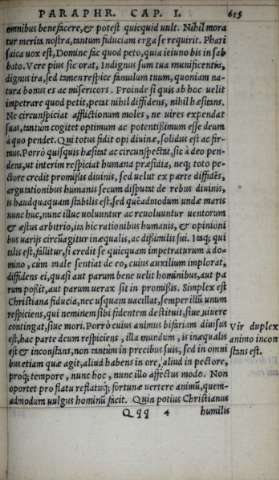 PARAPHR. CAP. I. 615
omnibus benefacere, & potest quicquid uult. Nihil mora
tur merita nostra, tantum fiduciam erga se requirit. Pharisaica uox est, Domine sic quod peto, quia ieiuno bis in sab
bato. Vere pius sic orat, Indignus sum tua munificentia,
dignus ira, sed tamen respice famulum tuum, quoniam na-
tura bonus es ac misericors. Proinde si quis ab hoc uelit
impetrare quod petit, petat nihil diffidens, nihil hæsitans.
Ne circunspiciat afflictionum moles, ne uires expendat
suas, tantum cogitet optimum ac potentissimum esse deum
à quo pendet. Qui totus fidit opi diuinæ, solidus est ac fir-
mus. Porrò quisquis hæsitat ac circunspectat, sic à deo pen-
dens, ut interim respiciat humana præsidia, neq; toto pe-
ctore credit promissis diuinis, sed uelut ex parte diffidēs,
argutationibus humanis secum disputat de rebus diuinis,
is haudquaquam stabilis est: sed quēadmodum unda maris
nunc huc, nunc illuc uoluuntur ac reuoluuntur uentorum
& æstus arbitrio, ita hic rationibus humanis, & opinioni
bus uarijs circūagitur inæqualis, ac dissimilis sui. Itaq; qui
talis est, fallitur, si credit se quicquam impetraturum à do-
mino, cum male sentiat de eo, cuius auxilium implorat,
diffidens ei, quasi aut parum bene uelit hominibus, aut pa
rum possit, aut parum uerax sit in promissis. Simplex est
Christiana fiducia, nec usquam uacillat, semper illū unum
respiciens, qui neminem sibi fidentem destituit, siue uiuere
contingat, siue mori. Porrò cuius animus bifariam diuisus
est, hac parte deum respiciens, illa mundum, is inæqualis
est & inconstans, non tantùm in precibus suis, sed in omni
bus etiam quæ agit, aliud habens in ore, aliud in pectore,
proq; tempore, nunc hoc, nunc illo affectus modo. Non
oportet pro flatu reflatuq; fortunæ vertere animū, quem-
admodum uulgus hominū facit. Quin potius Christianus
Vir duplex
animo incon
stans est.
Qqq 4 humilis